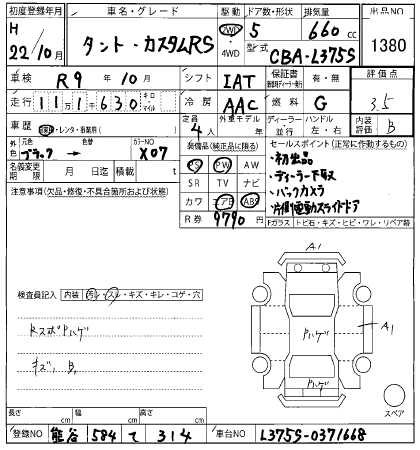 初度登録年月 車名・グレード 駆動 ドア数・形状 排気量 出品NO
H 22/10月 タント・カスタムRS 2WD 4WD 5 660 cc 1380
型式 CBA-L375S
車検 R9年10月 シフト IAT 保証書 有・無 評価点
走行 111,630 キロ・マイル 冷房 AAC 燃料 G 3.5
車歴 自家・レンタ・事業用( ) 定員 4人 外車モデル 年 ディーラー 並行 ハンドル 左・右 内装 B
外色 元色 ブラック → 色替 カラーNO X07 装備品(純正品に限る) セールスポイント(正常に作動するもの)
名義変更期限 月 日迄 積載 t PS PW AW ・初出品
注意事項(欠品・修復・不具合箇所および状態) SR TV ナビ ・ディーラー下取
カワ エアB ABS ・バックカメラ
R券 9790円 ・片側電動スライドドア
Fガラス トビ石・キズ・ヒビ・ワレ・リペア跡
検査員記入 内装 汚レ・スレ・キズ・キレ・コゲ・穴
A1
RスポPハゲ
Pハゲ
A1
キズ、B,
Pハゲ
スペア
長さ cm 幅 cm 高さ cm
登録NO 熊谷 584 て 314 車台NO L375S-0371668